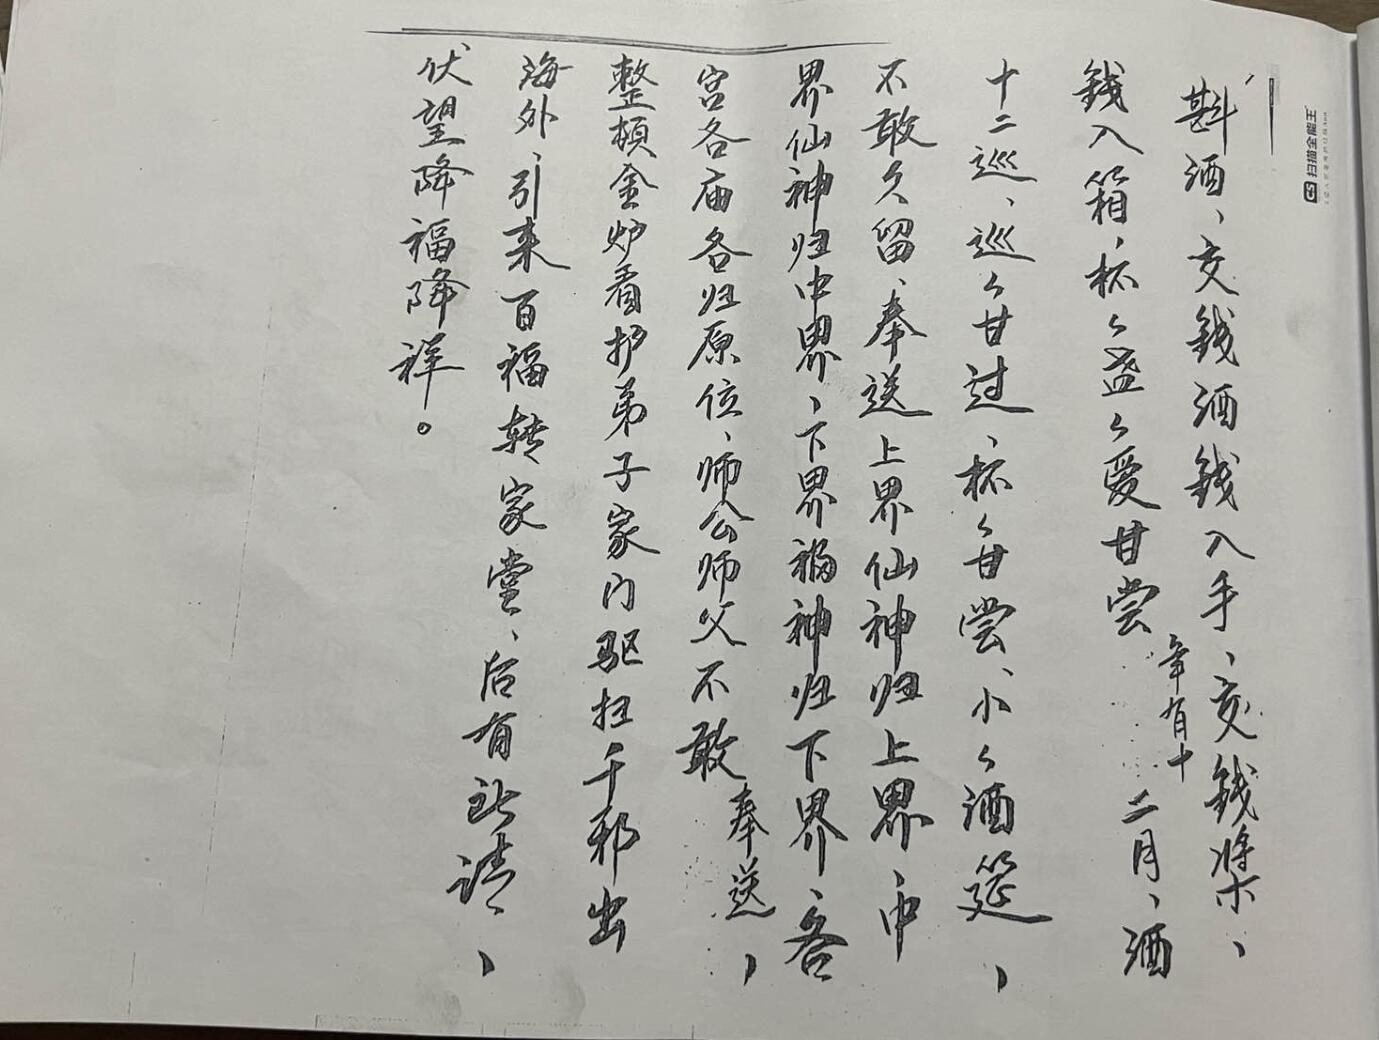 斟酒、交钱酒钱入手、交钱将来、
钱入箱、杯々盏々爱甘尝年有十二月、酒
十二巡、巡々甘过、杯々甘尝、小々酒筵、
不敢久留、奉送上界仙神归上界、中
界仙神归中界、下界祸神归下界、各
宫各庙各归原位、师公师父不敢奉送、
整顿金炉看护弟子家门驱扫千邪出
海外、引来百福转家堂、后有请、
伏望降福降祥。
扫描全能王